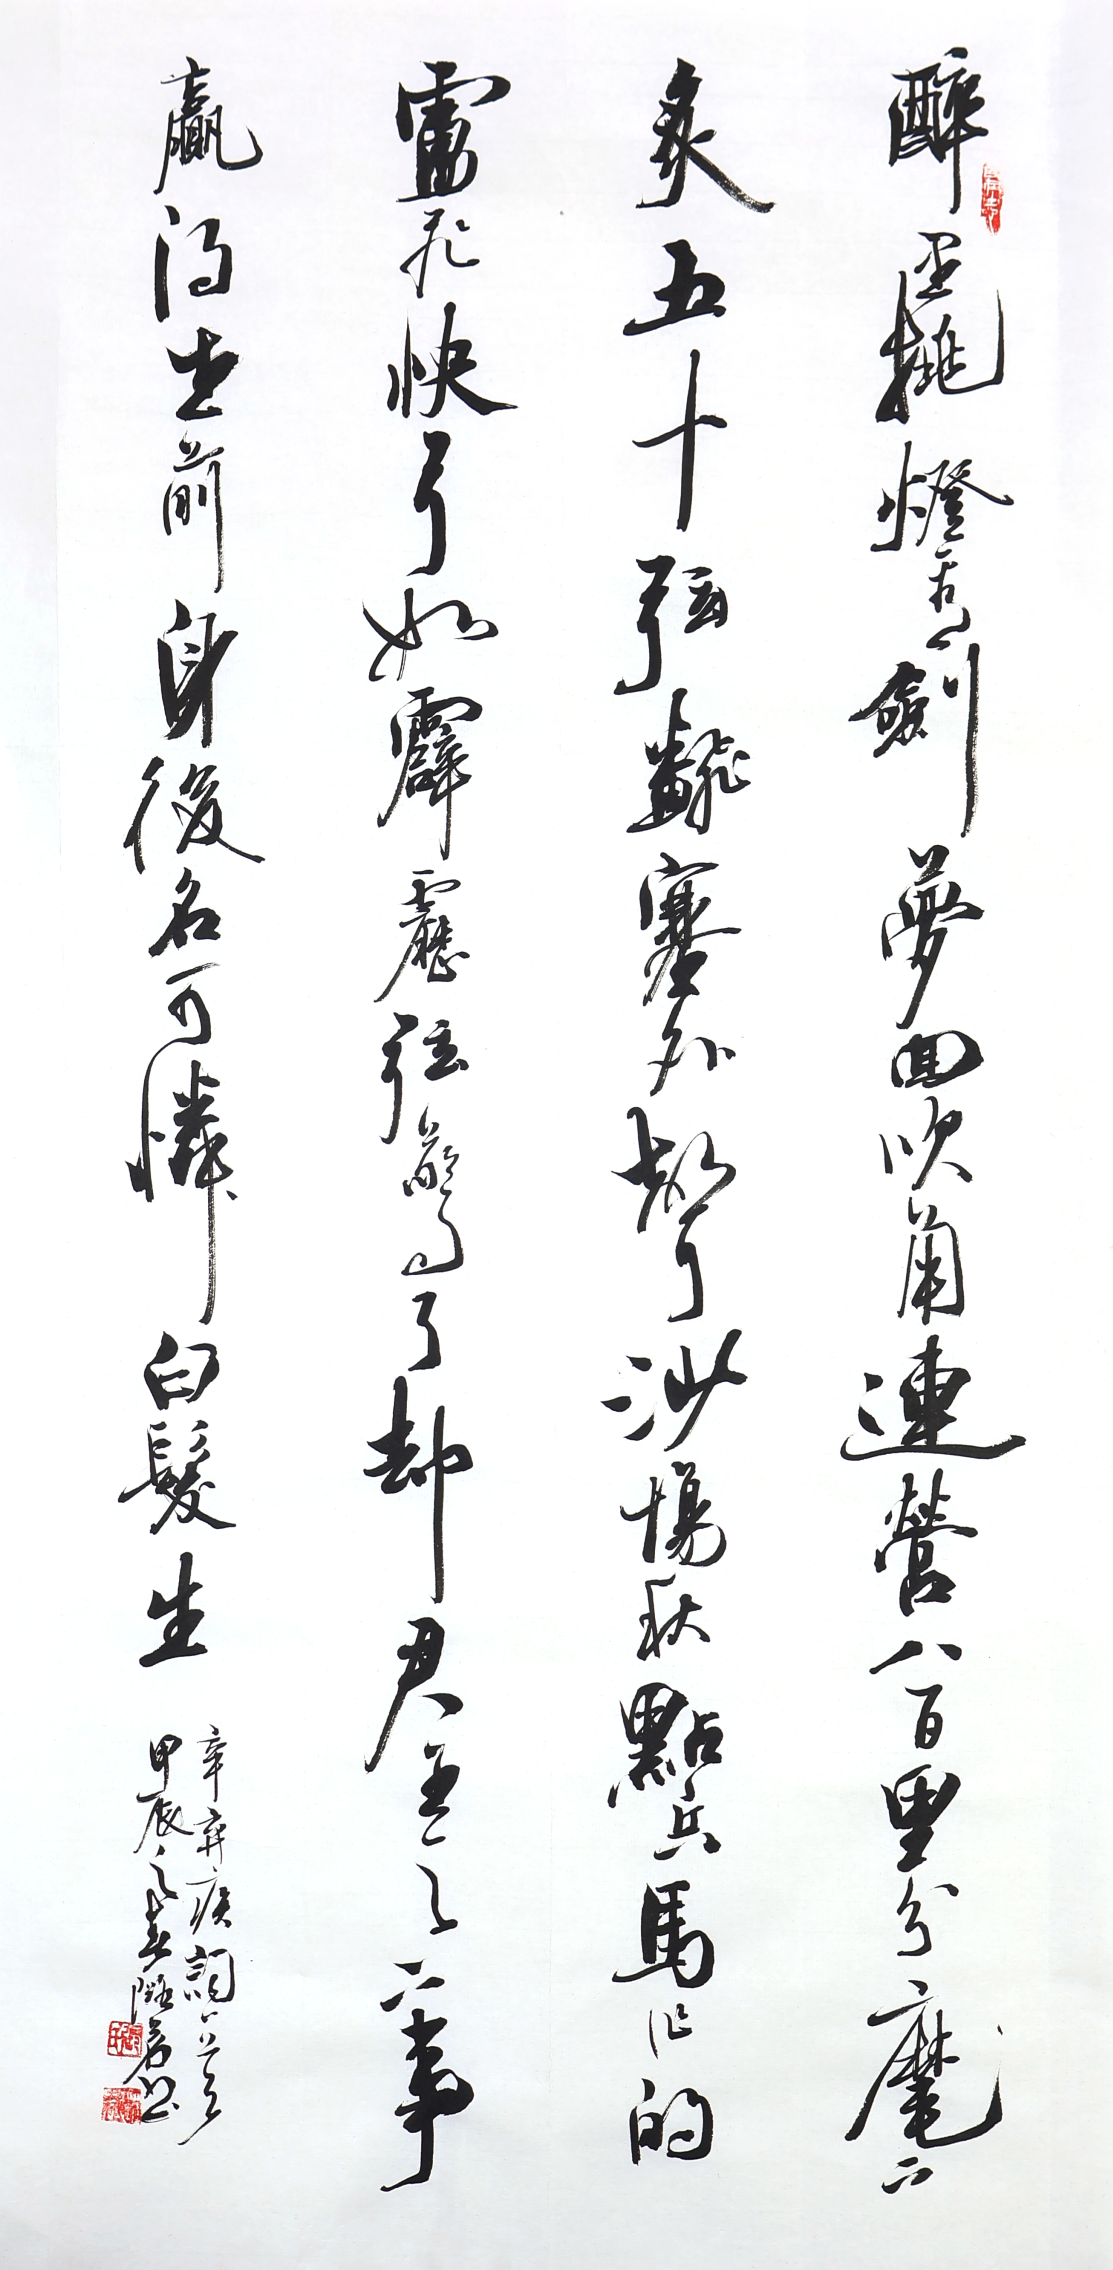 醉里挑燈看劍夢回吹角連營八百里分麾下
炙五十弦翻塞外聲沙場秋點兵馬作的
盧飛快弓如霹靂弦驚了却君王天下事
贏得生前身後名可憐白髮生
辛弃疾詞一首
甲辰之春